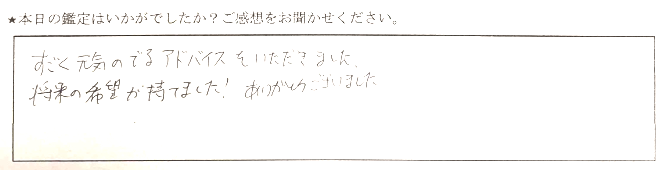 ★本日の鑑定はいかがでしたか？ご感想をお聞かせください。
すごく元気のでるアドバイスをいただきました。
将来の希望が持てました！ありがとうございました